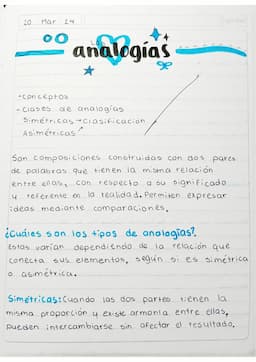 20 Mar 24
analogías
-conceptos
-clases de analogías
Simétricas→Clasificación
Asimétricas
Son composiciones construidas con dos pares
de palabras que tienen la misma relación
entre ellas, con respecto a su significado
y referente en la realidad. Permiten expresar
ideas mediante comparaciones.
¿Cuáles son los tipos de analogías?
Estas varían dependiendo de la relación que
conecta sus elementos, según si es simétrica
o asimétrica.
Simétricas: Cuando las dos partes tienen la
misma proporción y existe armonía entre ellas,
pueden intercambiarse sin afectar el resultado.